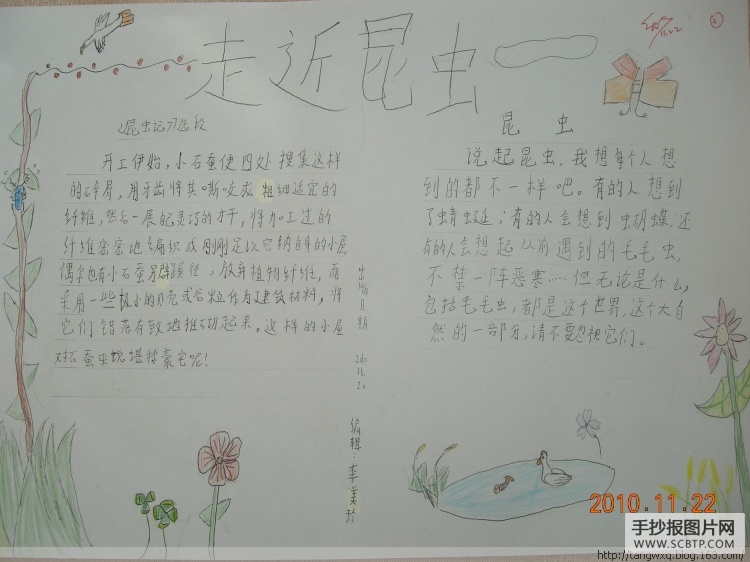 走近昆虫
《昆虫记》选段
开工伊始，小石蚕便四处搜集这样
的碎屑，用牙齿将其嘶咬成粗细适宜的
纤维，然后一展能灵巧的才干，将加工过的
纤维密密地编织成刚刚足以容纳自身的小屋
偶尔也有小石蚕另辟蹊径，放弃植物纤维，而
采用一些极小的贝壳或谷粒作为建筑材料，将
它们错落有致地堆砌起来。这样的小屋
对石蚕来说堪称豪宅呢！
出版日期
2010.
11.20
编辑：李美玲
昆 虫
说起昆虫，我想每个人想
到的都不一样吧。有的人想到
了蜻蜓；有的人会想到蝴蝶；还
有的人会想起从前遇到的毛毛虫，
不禁一阵恶寒……但无论是什么，
包括毛毛虫，都是这个世界，这个大自
然的一部分，请不要忽视它们。
2010.11.22
手抄报图片网
WWW.SCBTP.COM
http://tangwxq.blog.163.com